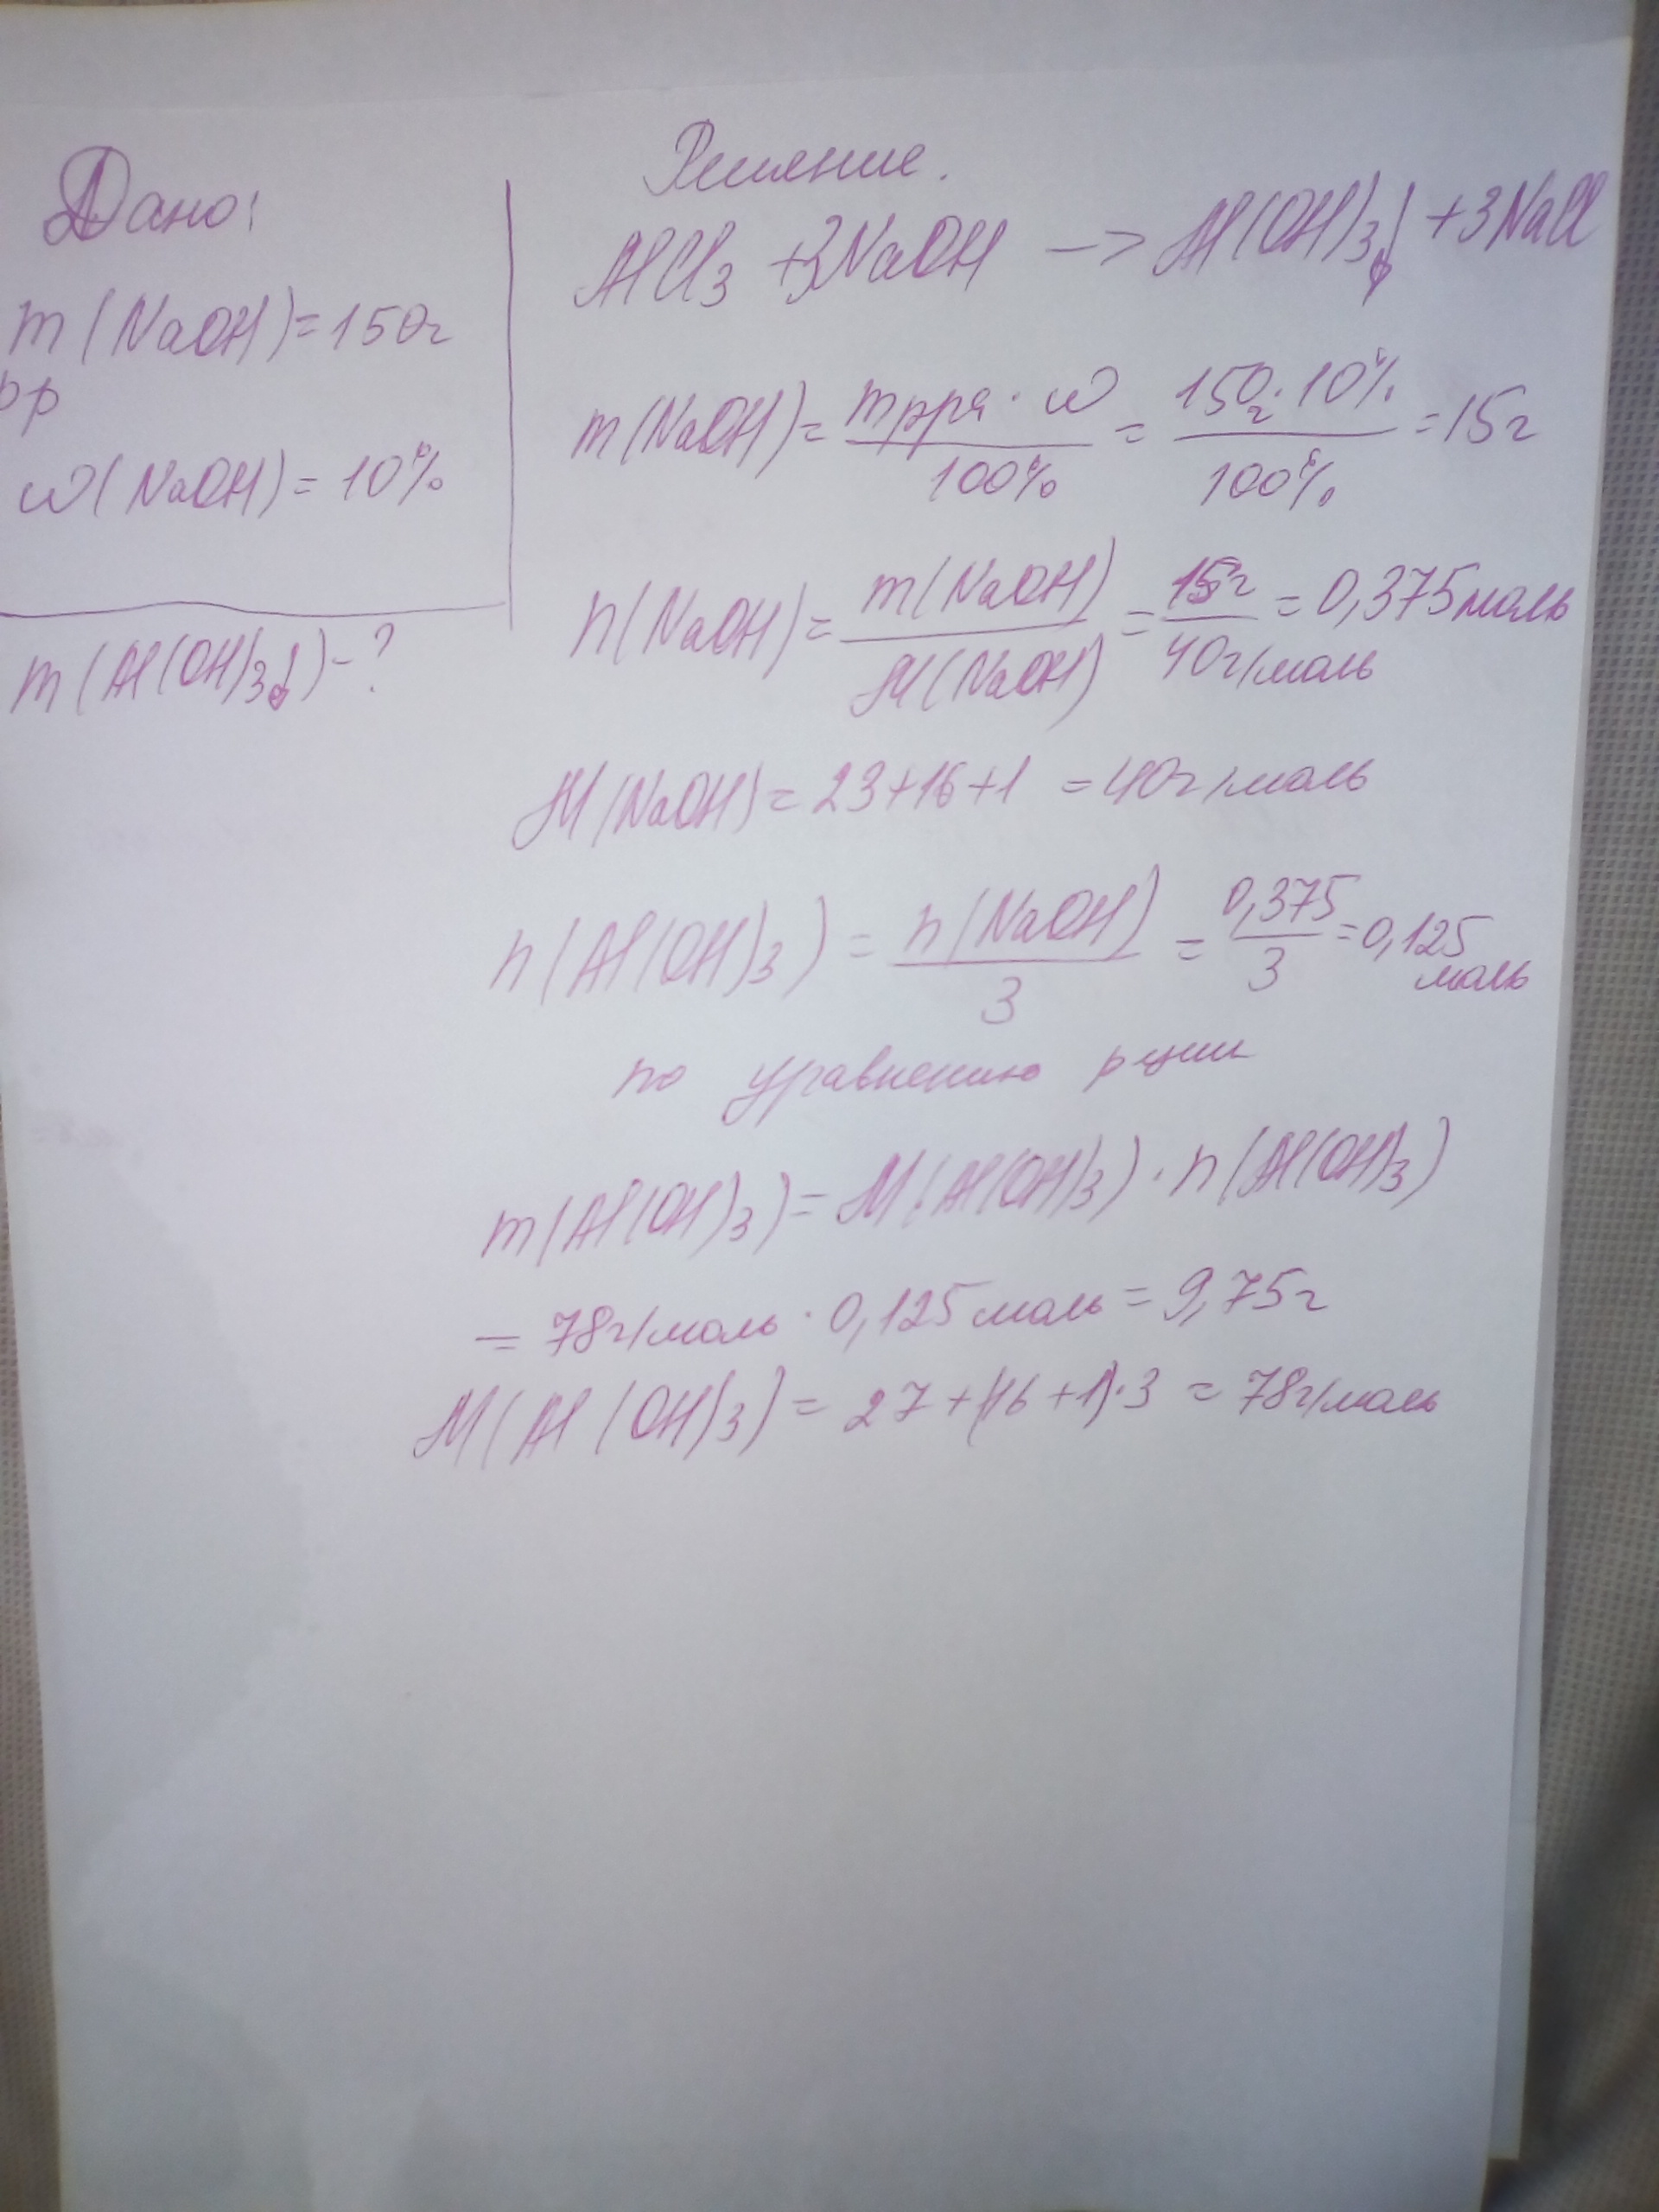 Дано:
m(NaOH)=150г
рр
ω(NaOH)=10%
m(Al(OH)3↓)-?
Решение.
AlCl3 +3NaOH —> Al(OH)3↓ +3NaCl
m(NaOH)= mрра · ω / 100% = 150г · 10% / 100% =15г
n(NaOH)= m(NaOH) / M(NaOH) = 15г / 40г/моль = 0,375моль
M(NaOH)=23+16+1 =40г/моль
n(Al(OH)3) = n(NaOH) / 3 = 0,375 / 3 =0,125 моль
по уравнению рции
m(Al(OH)3)= M(Al(OH)3) · n(Al(OH)3)
= 78г/моль · 0,125моль = 9,75г
M(Al(OH)3) = 27+(16+1)·3 = 78г/моль